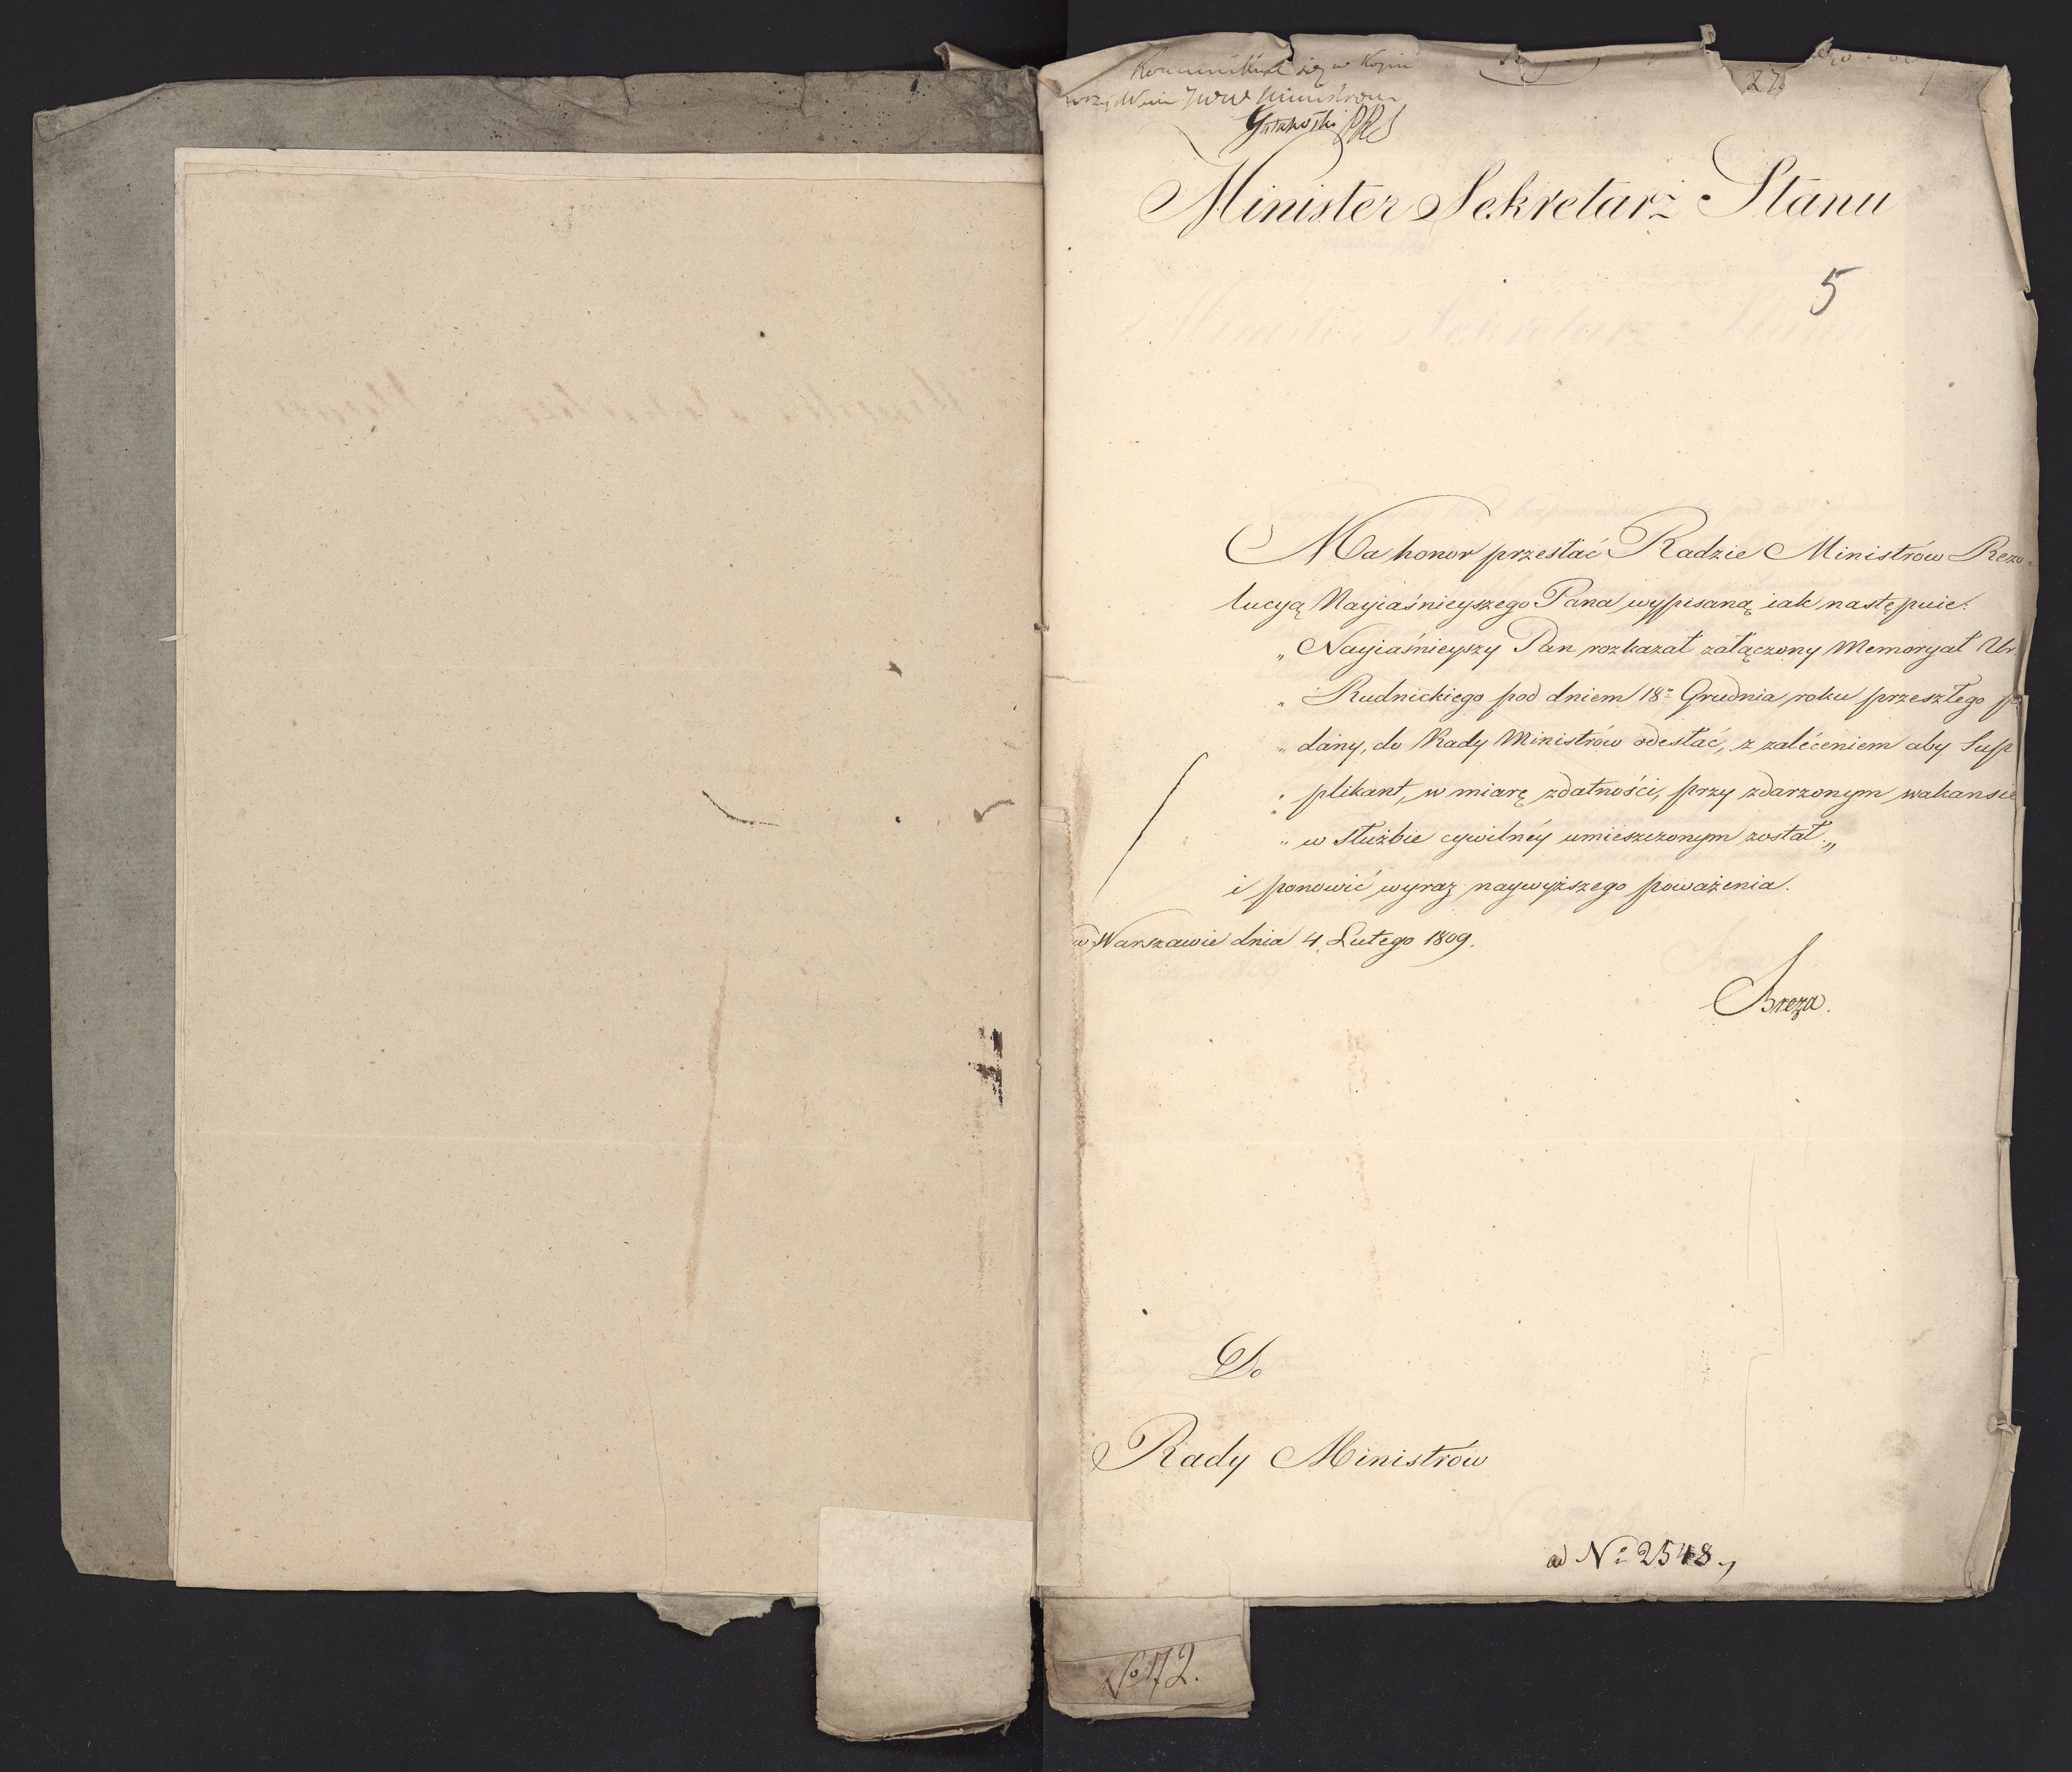 Kommunikuie się w Kopii
JWW Ministrom
Gutakowski PRS
27.
Minister Sekretarz Stanu
5
Ma honor przesłać Radzie Ministrów Rezo-
lucyą Nayiaśnieyszego Pana wypisaną iak następuie:
„ Nayiaśnieyszy Pan rozkazał załączony Memoryał Ur.
„ Rudnickiego pod dniem 18º Grudnia roku przeszłego po
„ dány, do Rady Ministrów odesłać, z zaléceniem aby Sup
„ plikant, w miarę zdatności, przy zdarzonym wakansie
„ w Służbie cywilnéy umieszczonym został.„
i ponowić wyraz naywyższego poważenia.
w Warszawie dnia 4. Lutego 1809.
Breza.
Do
Rady Ministrów
ad Nº 2548,
Nº 172.